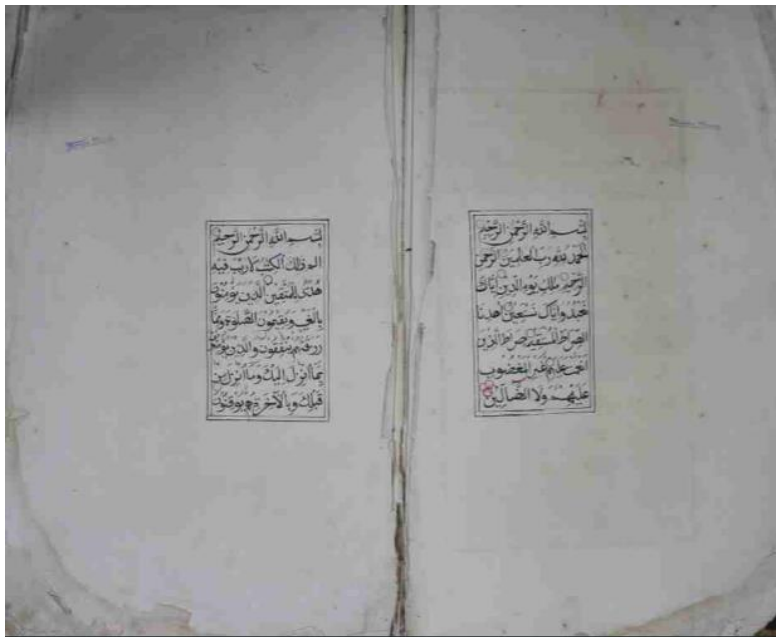 بسم الله الرحمن الرحيم
الحمد لله رب العلمين الرحمن
الرحيم ملك يوم الدين اياك
نعبد واياك نستعين اهدنا
الصراط المستقيم صراط الذين
انعمت عليهم غير المغضوب
عليهم ولا الضالين
بسم الله الرحمن الرحيم
الم ذلك الكتب لا ريب فيه
هدى للمتقين الذين يؤمنون
بالغيب ويقيمون الصلوة ومما
رزقنهم ينفقون والذين يؤمنون
بما انزل اليك وما انزل من
قبلك وبالاخرة هم يوقنون